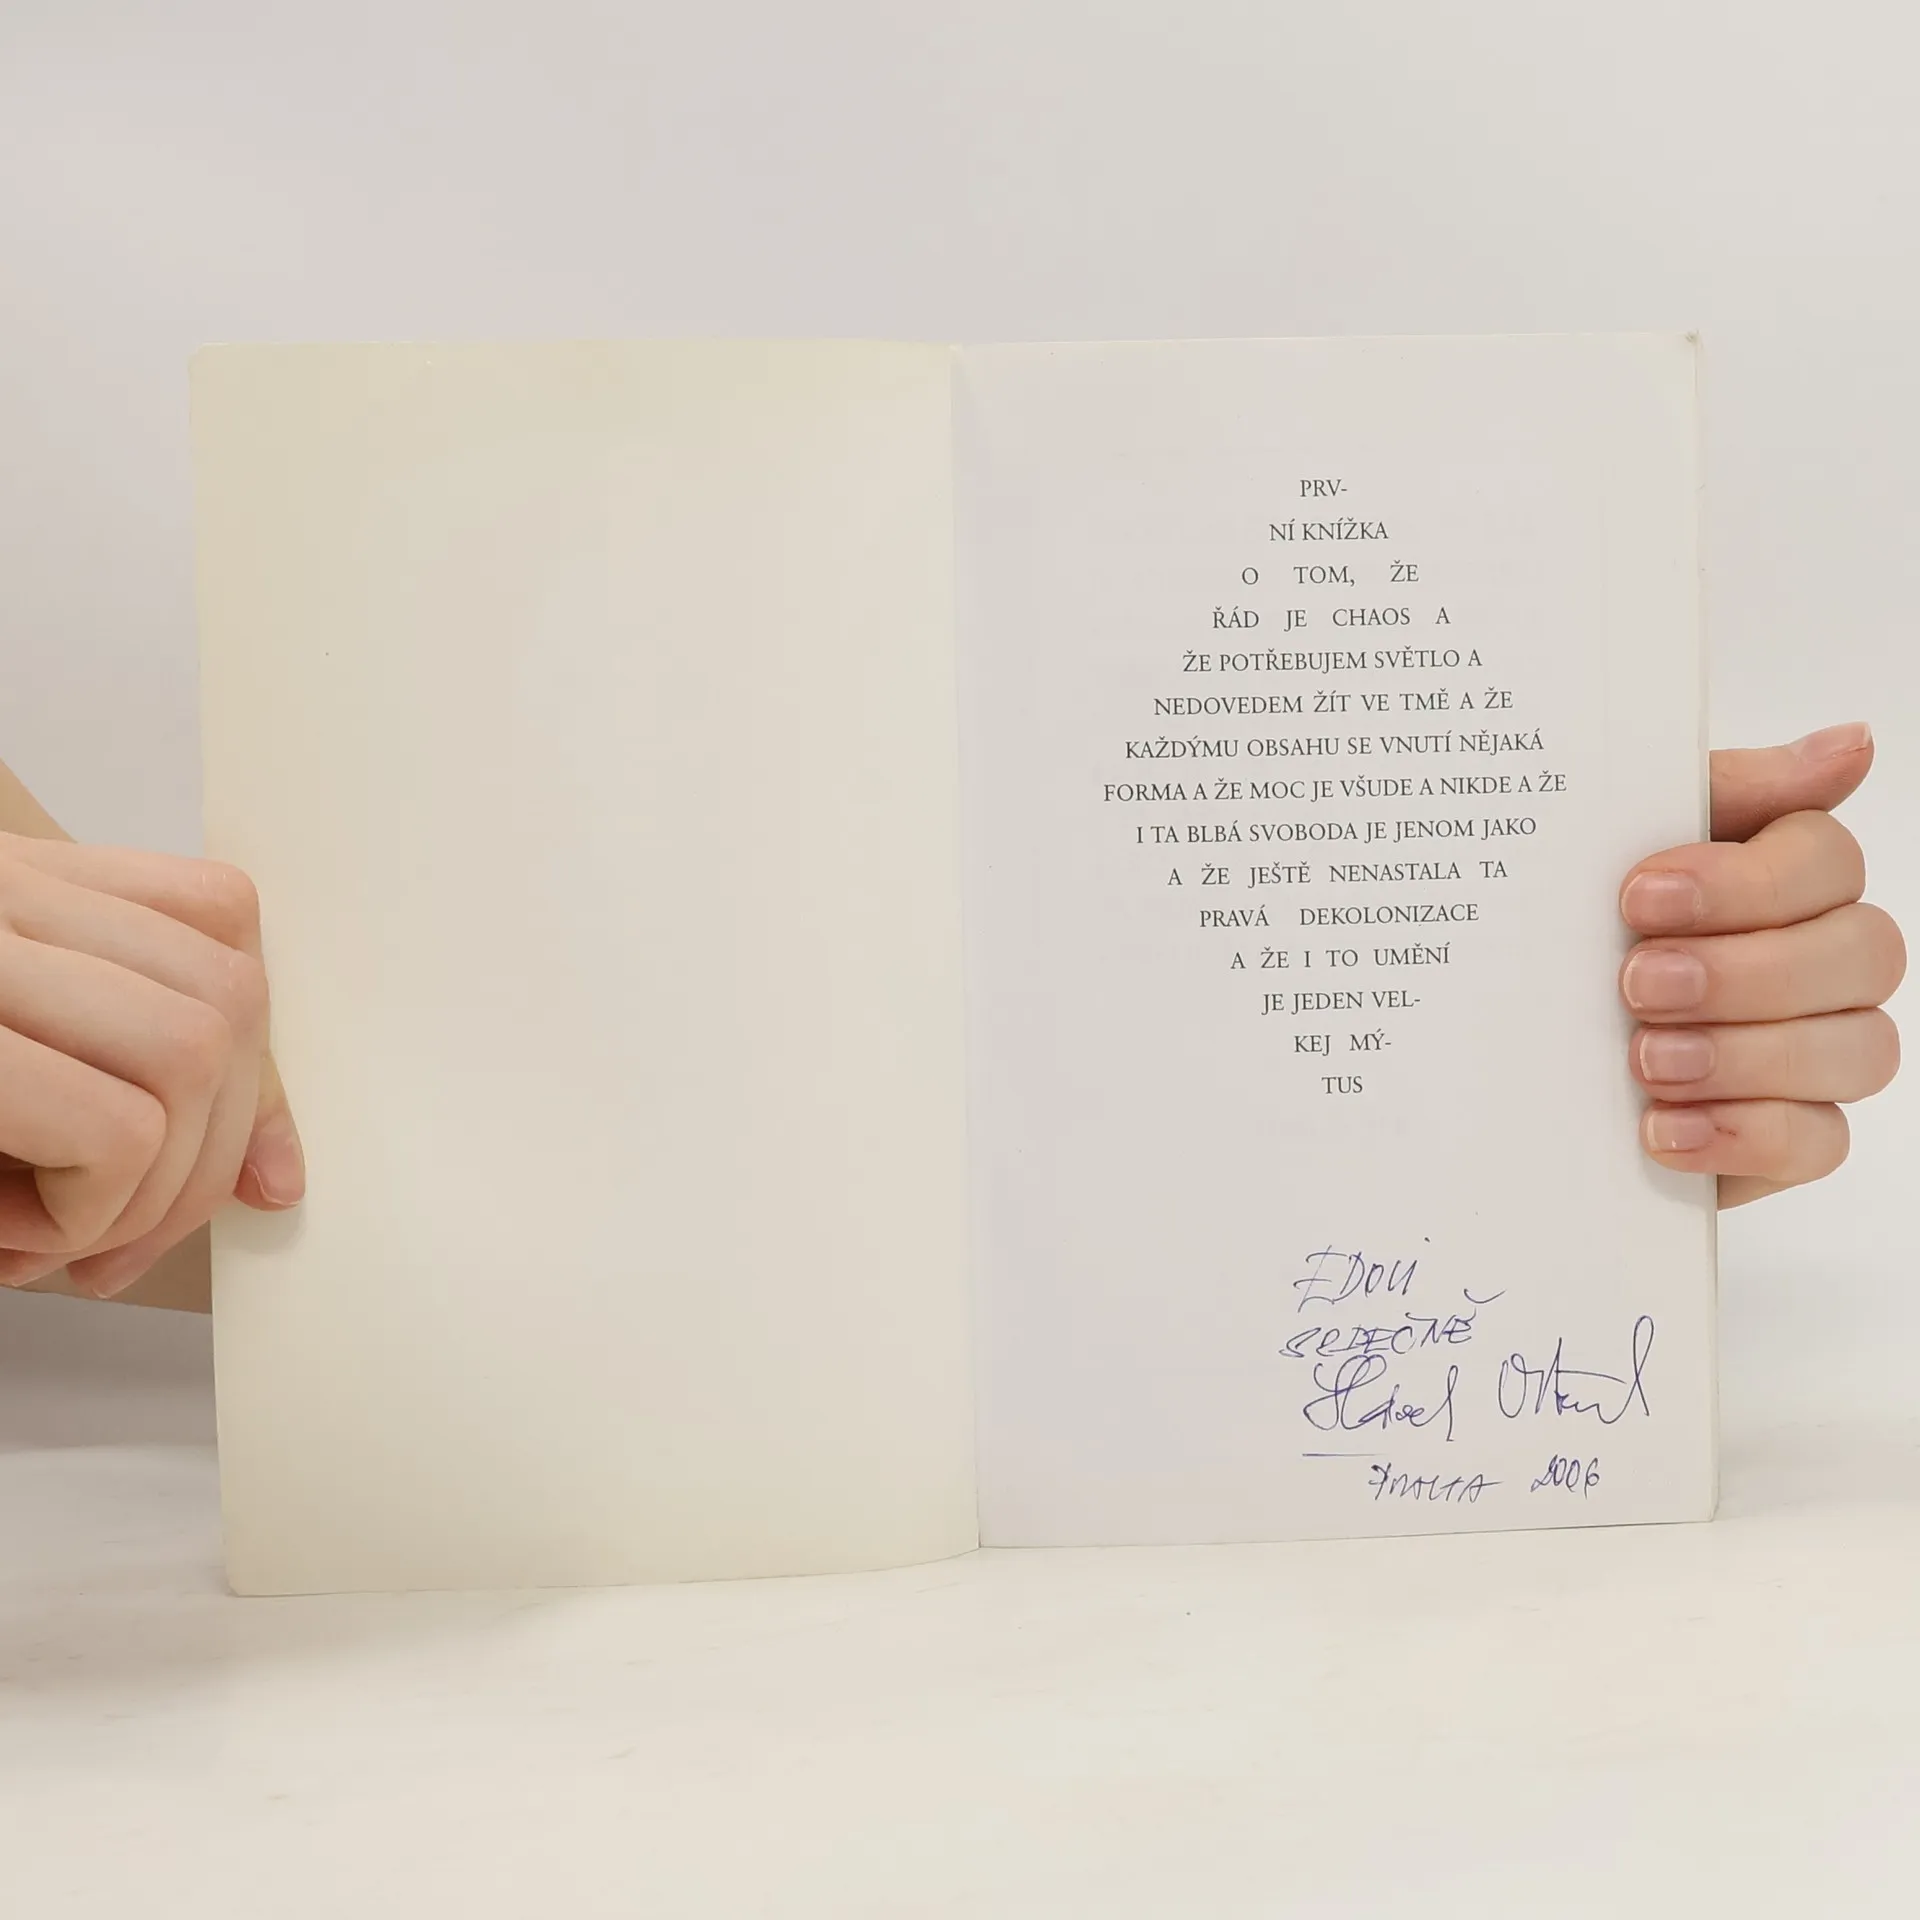 PRV-
NÍ KNÍŽKA
O TOM, ŽE
ŘÁD JE CHAOS A
ŽE POTŘEBUJEM SVĚTLO A
NEDOVEDEM ŽÍT VE TMĚ A ŽE
KAŽDÝMU OBSAHU SE VNUTÍ NĚJAKÁ
FORMA A ŽE MOC JE VŠUDE A NIKDE A ŽE
I TA BLBÁ SVOBODA JE JENOM JAKO
A ŽE JEŠTĚ NENASTALA TA
PRAVÁ DEKOLONIZACE
A ŽE I TO UMĚNÍ
JE JEDEN VEL-
KEJ MÝ-
TUS
EDOVI
SRDEČNĚ
2006